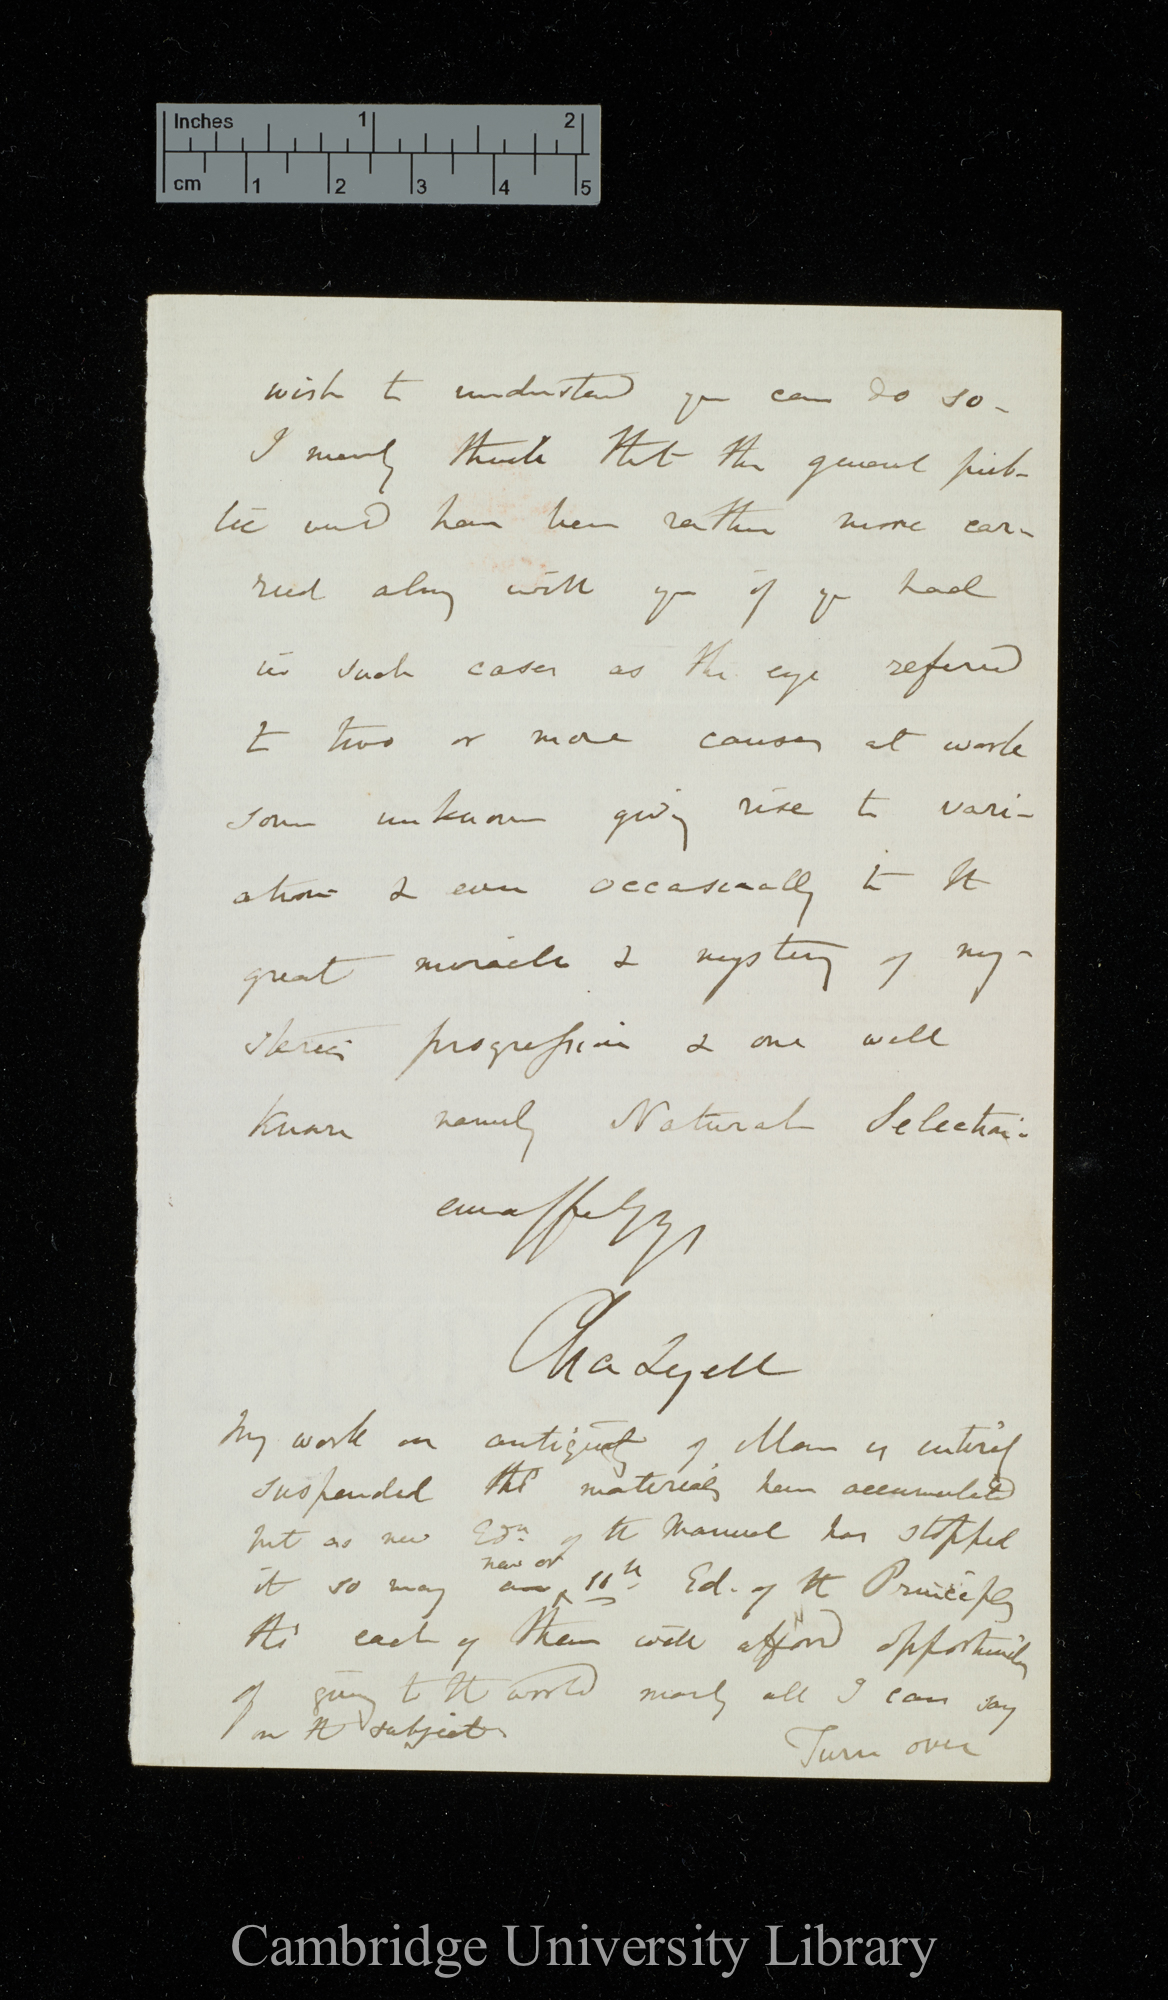 Inches 1 2
cm 1 2 3 4 5
wish to understand you can do so-
I merely think that the general pub-
lic wd have been rather more car-
ried along with you if you had
in such cases as the eye referred
to two or more causes at work
some unknown giving rise to vari-
ation & even occasionally to the
great miracle & mystery of my-
steries progression & one well
known namely Natural Selection.
ever affecly yrs
Cha Lyell
My work on antiquity of Man is entirely
suspended tho' materials have accumulated
but as new Edn. of the Manual has stopped
new or
it so may an 11th Ed. of the Principles
tho' each of them will afford opportunity
of giving to the world nearly all I can say
on the subject
Turn over
Cambridge University Library